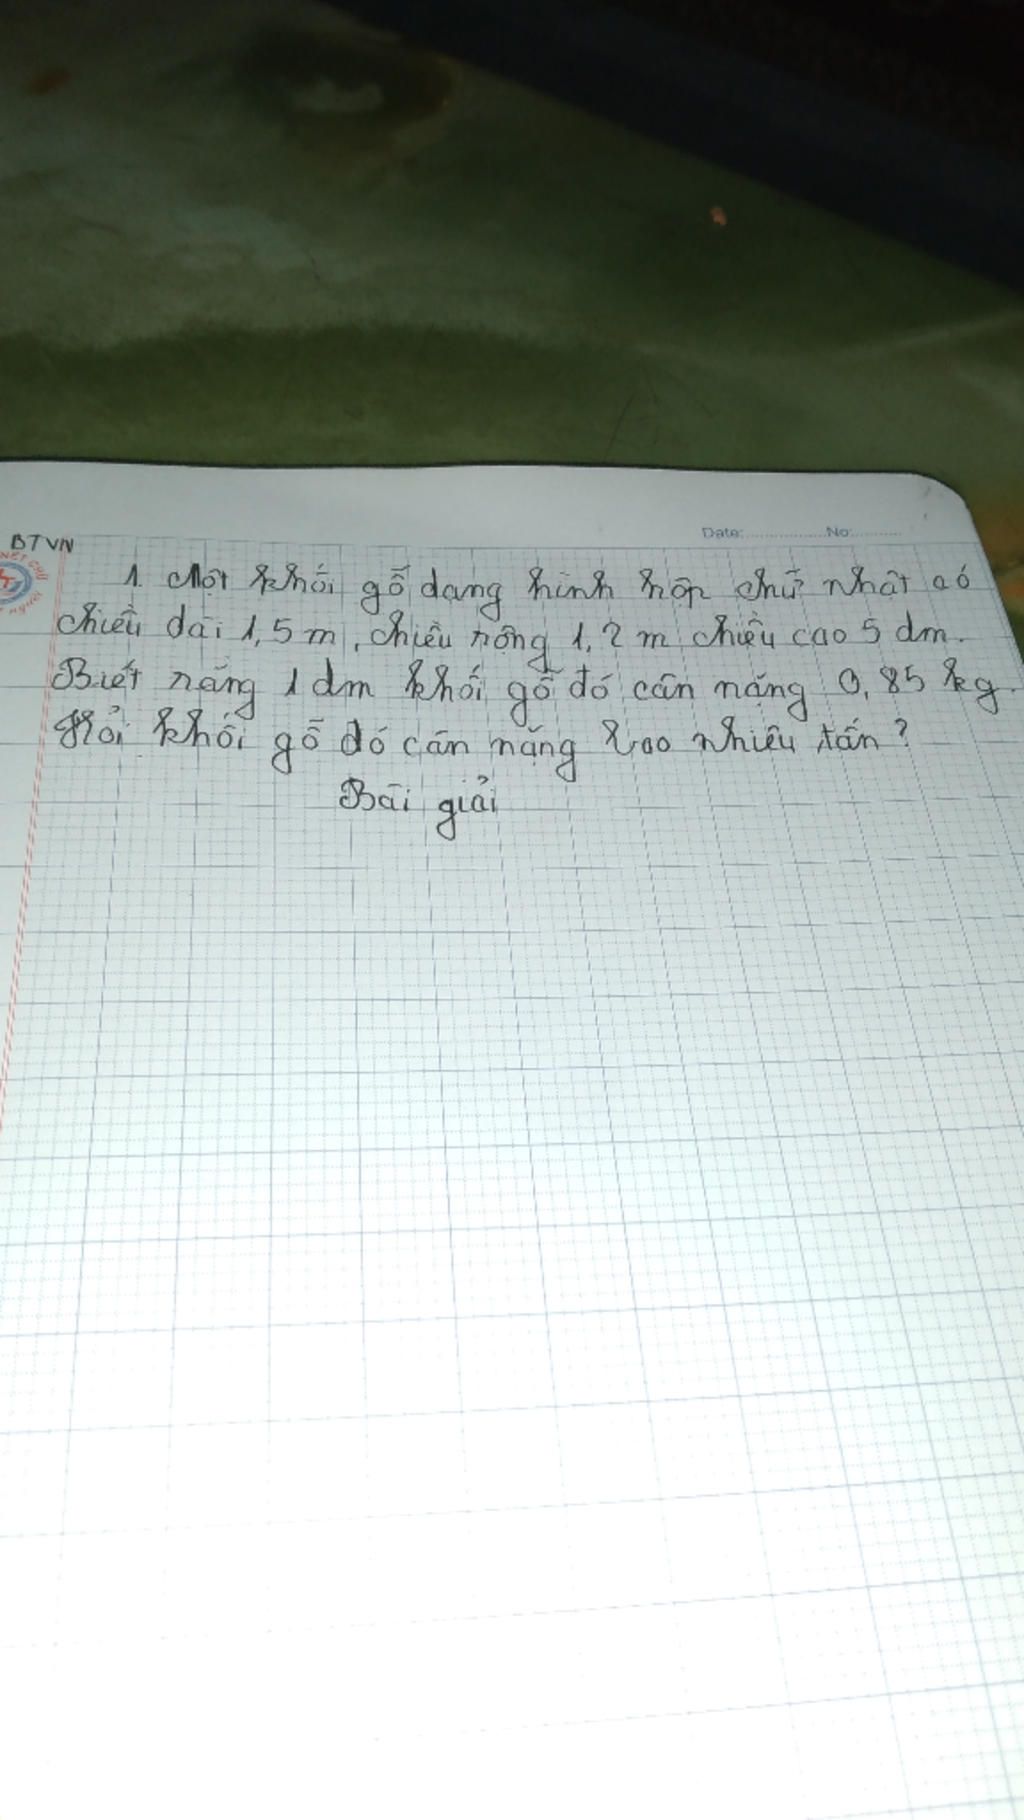 Date: No:
BTVN
1. Một khối gỗ dạng hình hộp chữ nhật có
chiều dài 1,5 m, chiều rộng 1,2 m chiều cao 5 dm.
Biết rằng 1 dm khối gỗ đó cân nặng 0,85 kg.
Hỏi khối gỗ đó cân nặng bao nhiêu tấn?
Bài giải